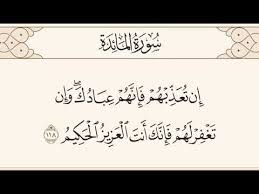 سُورَةُ المَائِدَة
إِن تُعَذِّبْهُمْ فَإِنَّهُمْ عِبَادُكَ ۖ وَإِن
تَغْفِرْ لَهُمْ فَإِنَّكَ أَنتَ ٱلْعَزِيزُ ٱلْحَكِيمُ ١١٨